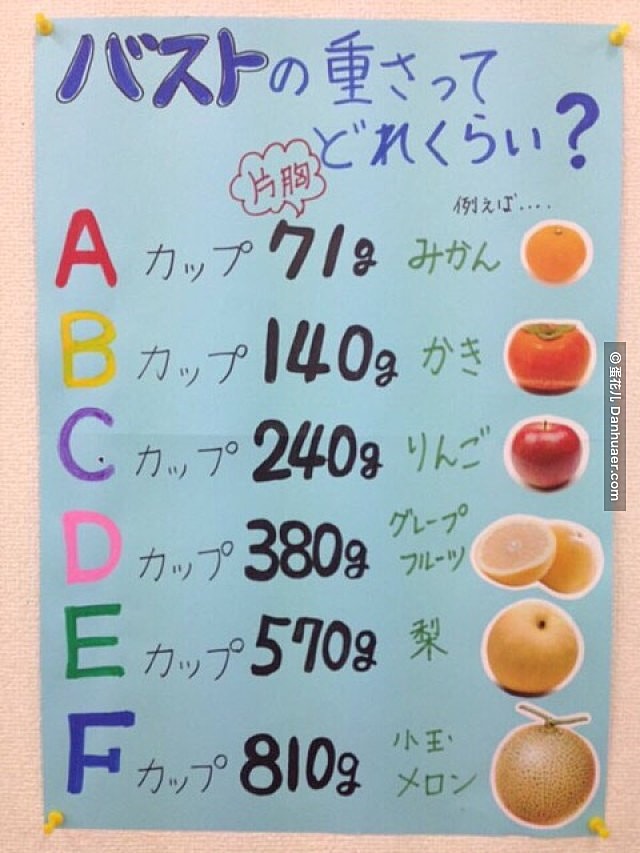 バストの重さって
どれくらい？
片胸
例えば....
Aカップ 71g みかん
Bカップ 140g かき
Cカップ 240g りんご
Dカップ 380g グレープ
フルーツ
Eカップ 570g 梨
Fカップ 810g 小玉
メロン
©蛋花儿 Danhuaer.com